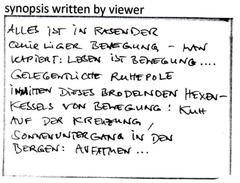 synopsis written by viewer
ALLES IST IN RASENDER
QUIRLIGER BEWEGUNG - MAN
KAPIERT: LEBEN IST BEWEGUNG....
GELEGENTLICHE RUHEPOLE
INMITTEN DIESES BRODELNDEN HEXEN-
KESSELS VON BEWEGUNG: KUH
AUF DER KREUZUNG,
SONNENUNTERGANG IN DEN
BERGEN: AUFATMEN...